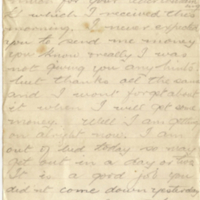 for your
which I received this
morning. I never expected
you to send me money
you know really I was
not giving you any hints
but thanks all the same
and I wont forget about
it when I will get some
money. Well I am getting
on alright now. I am
out of bed today so may
get out in a day or two
It is a good job you
did nt come down yesterday